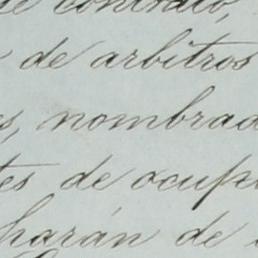 de contrato,
de arbitros
s, nombrad
tes de ocup
harán de